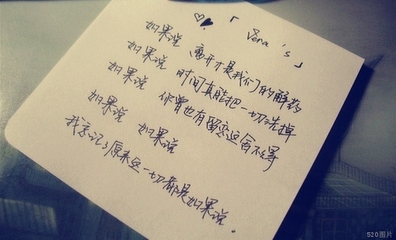 「 Vera 's 」
如果说 离开才是我们的解药
如果说 时间真能把一切洗掉
如果说 你曾也有留恋过舍不得
如果说 如果说
我忘记了原来这一切都是如果说。
520图片